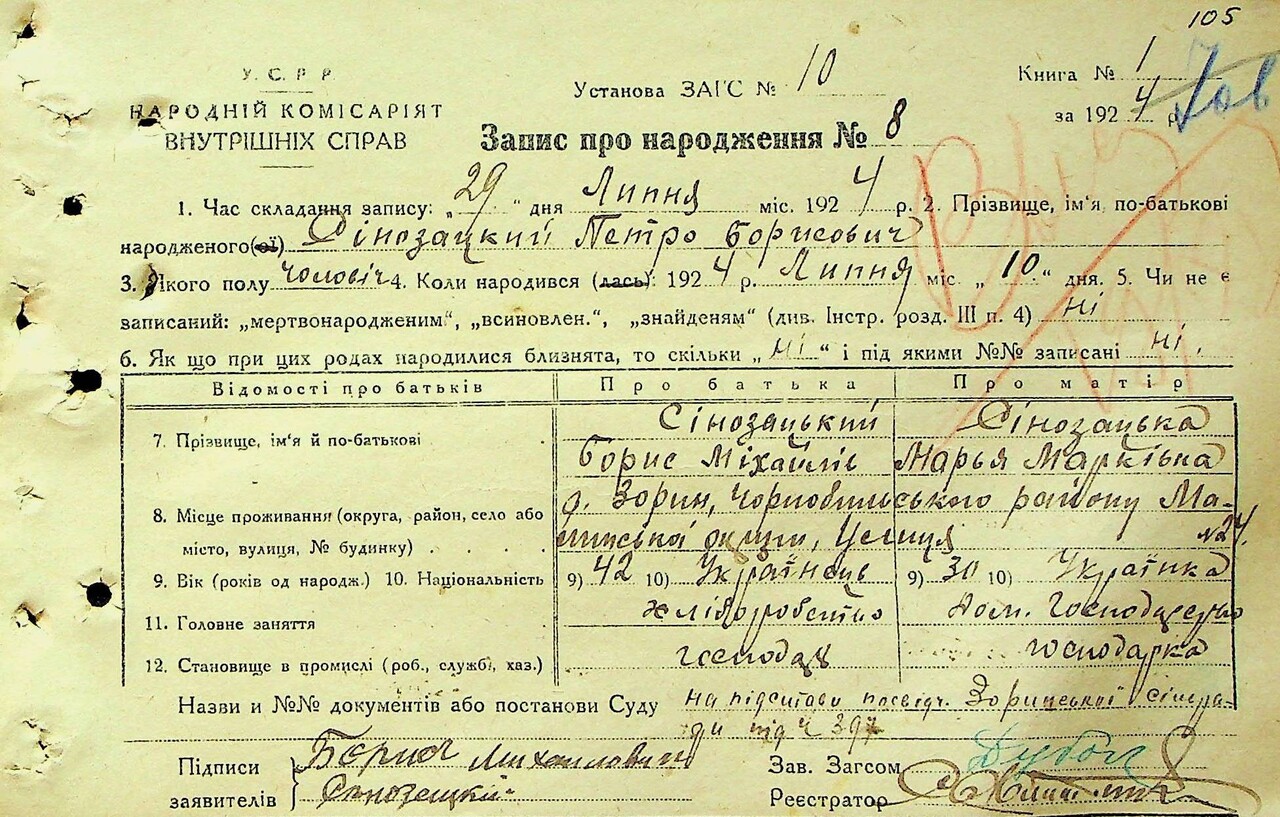 105
У.С.Р.Р.
НАРОДНІЙ КОМІСАРІЯТ
ВНУТРІШНІХ СПРАВ
Установа ЗАГС № 10
Книга № 1
за 1924 р.
Запис про народження № 8
1. Час складання запису: „29" дня Липня міс. 1924 р. 2. Прізвище, ім'я по-батькові
народженого(ої) Сінозацкий Петро Борисович
3. Якого полу чоловіч 4. Коли народився (лась): 1924 р. Липня міс. „10" дня. 5. Чи не є
записаний: „мертвонародженим", „всиновлен.", „знайденям" (див. Інстр. розд. III п. 4) ні
6. Як що при цих родах народилися близнята, то скільки „ні" і під якими №№ записані ні.
Відомості про батьків Про батька Про матір
7. Прізвище, ім'я й по-батькові Сінозацький Сінозацька
Борис Міхайлів Марья Марківна
8. Місце проживання (округа, район, село або с. Зорин, Чорнобильського району Ма-
місто, вулиця, № будинку) округи, №24.
9. Вік (років од народж.) 10. Національність 9) 42 10) Українець 9) 30 10) Українка
11. Головне заняття хліборобство дом. господарство
12. Становище в промислі (роб., службі, хаз.) господар господарка
Назви и №№ документів або постанови Суду на підставі посвідч. Зоринської сільра-
ди від ч 397
Підписи Борис Михаилович Зав. Загсом
заявителів Синозацкий Реєстратор